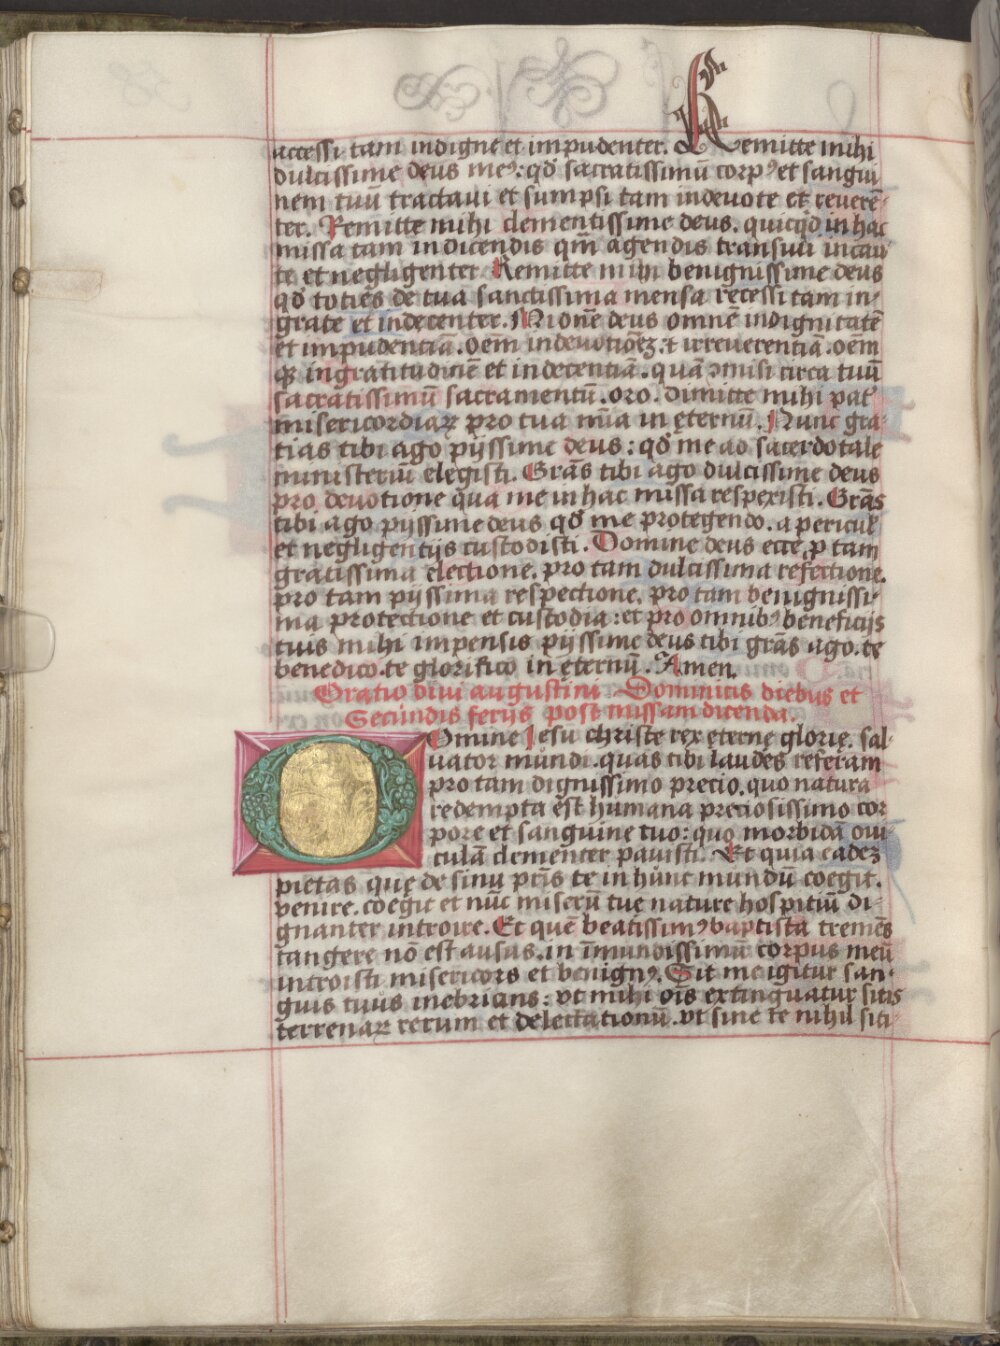 accessi tam indigne et impudenter. Remitte mihi
dulcissime deus meꝰ: qđ sacratissimū corpꝰ et sangui
nem tuū tractaui et sumpsi tam indeuote et reuerē-
ter. Remitte mihi clementissime deus. quicqđ in hac
missa tam in dicendis qm̄ agendis transiui incau
te et negligenter. Remitte mihi benignissime deus
qđ toties de tua sanctissima mensa recessi tam in-
grate et indecenter. Mi one deus omnē indignitatē
et impudentiā. oēm indeuotiōeꝫ. ⁊ irreuerentiā. oēm
qꝫ ingratitudinē et indecentiā. quā ꝯmisi circa tuū
sacratissimū sacramentū. oro. dimitte mihi pat̄
misericordiaꝝ pro tua mīa in ęternū. Nunc gra
tias tibi ago pijssime deus: qđ me ad sacerdotale
ministeriū elegisti. Grās tibi ago dulcissime deus
pro deuotione qua me in hac missa respexisti. Grās
tibi ago pijssime deus qđ me protegendo. a pericul̄
et negligentijs custodisti. Domine deus ecce ꝓ tam
gratissima electione. pro tam dulcissima refectione.
pro tam pijssima respectione. pro tam benignissi-
ma protectione et custodia: et pro omnibꝰ beneficijs
tuis mihi impensis pijssime deus tibi grās ago. te
benedico. te glorifico in ęternū. Amen.
Oratio diui augustini Dominicis diebus et
Secundis ferijs post missam dicenda.
Domine Iesu christe rex ęterne glorię. sal-
uator mundi. quas tibi laudes referam
pro tam dignissimo precio. quo natura
redempta est humana preciosissimo cor
pore et sanguine tuo: quo morbidā oui
culā clementer pauisti. Et quia eadeꝫ
pietas quę de sinu pr̄is te in hunc mundū coegit.
venire. coegit et nūc miserū tue nature hospitiū di-
gnanter introire. Et quē beatissimꝰ baptista tremēs
tangere nō est ausus. in īmundissimū corpus meū
introisti misericors et benignꝰ. Sit me igitur san-
guis tuus inebrians: vt mihi oīs extinguatur sitis
terrenaꝝ rerum et delectationū. vt sine te nihil siti-